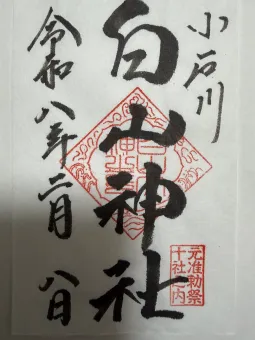 小石川
元准勅祭
十社之内
白山神社
令和八年二月八日